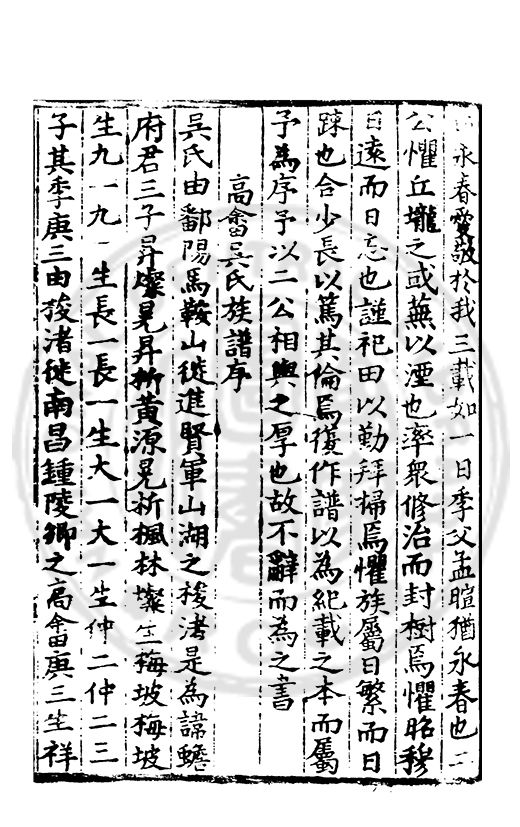 永春賓敬於我三載如一日季父孟暄猶永春也二
公懼丘壠之或蕪以湮也率衆修治而封樹焉懼昭穆
日遠而日忘也謹祀田以勤拜掃焉懼族屬日繁而日
踈也合少長以篤其倫焉復作譜以為紀載之本而屬
予為序予以二公相與之厚也故不辭而為之書
高畬吳氏族譜序
吳氏由鄱陽馬鞍山徙進賢軍山湖之梭渚是為諱蟾
府君三子昇燦晃昇析黃源晃析楓林燦生梅坡梅坡
生九一九一生長一長一生大一大一生仲二仲二三
子其季庚三由梭渚徙南昌鍾陵鄉之高畬庚三生祥